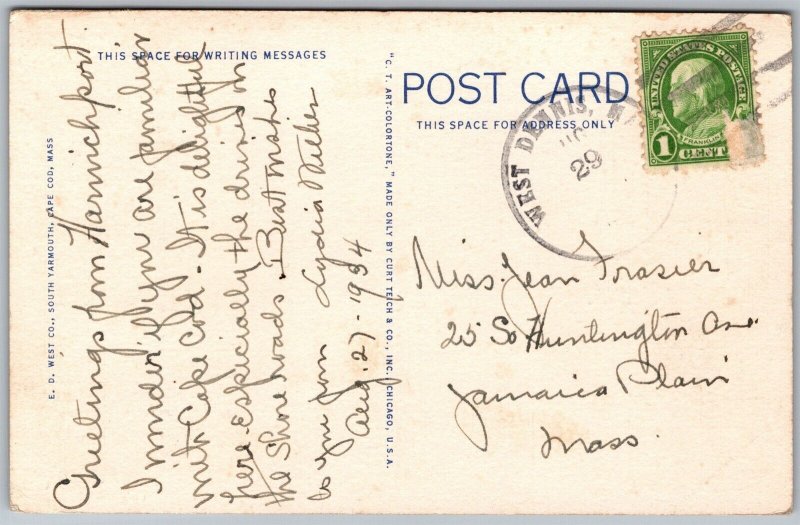 THIS SPACE FOR WRITING MESSAGES
Greetings from Harwichport.
I wonder if you are familiar
with Cape Cod - It is delightful
here especially the drives on
the Shore roads. Best wishes
to you from Lydia
Aug. 27 - 1934
E. D. WEST CO., SOUTH YARMOUTH, CAPE COD, MASS
"C. T. ART-COLORTONE," MADE ONLY BY CURT TEICH & CO., INC., CHICAGO, U.S.A.
POST CARD
THIS SPACE FOR ADDRESS ONLY
WEST DENNIS, M
29
UNITED STATES POSTAGE
FRANKLIN
1 CENT
Miss Jean Frasier
25 So Huntington Ave.
Jamaica Plain
Mass.